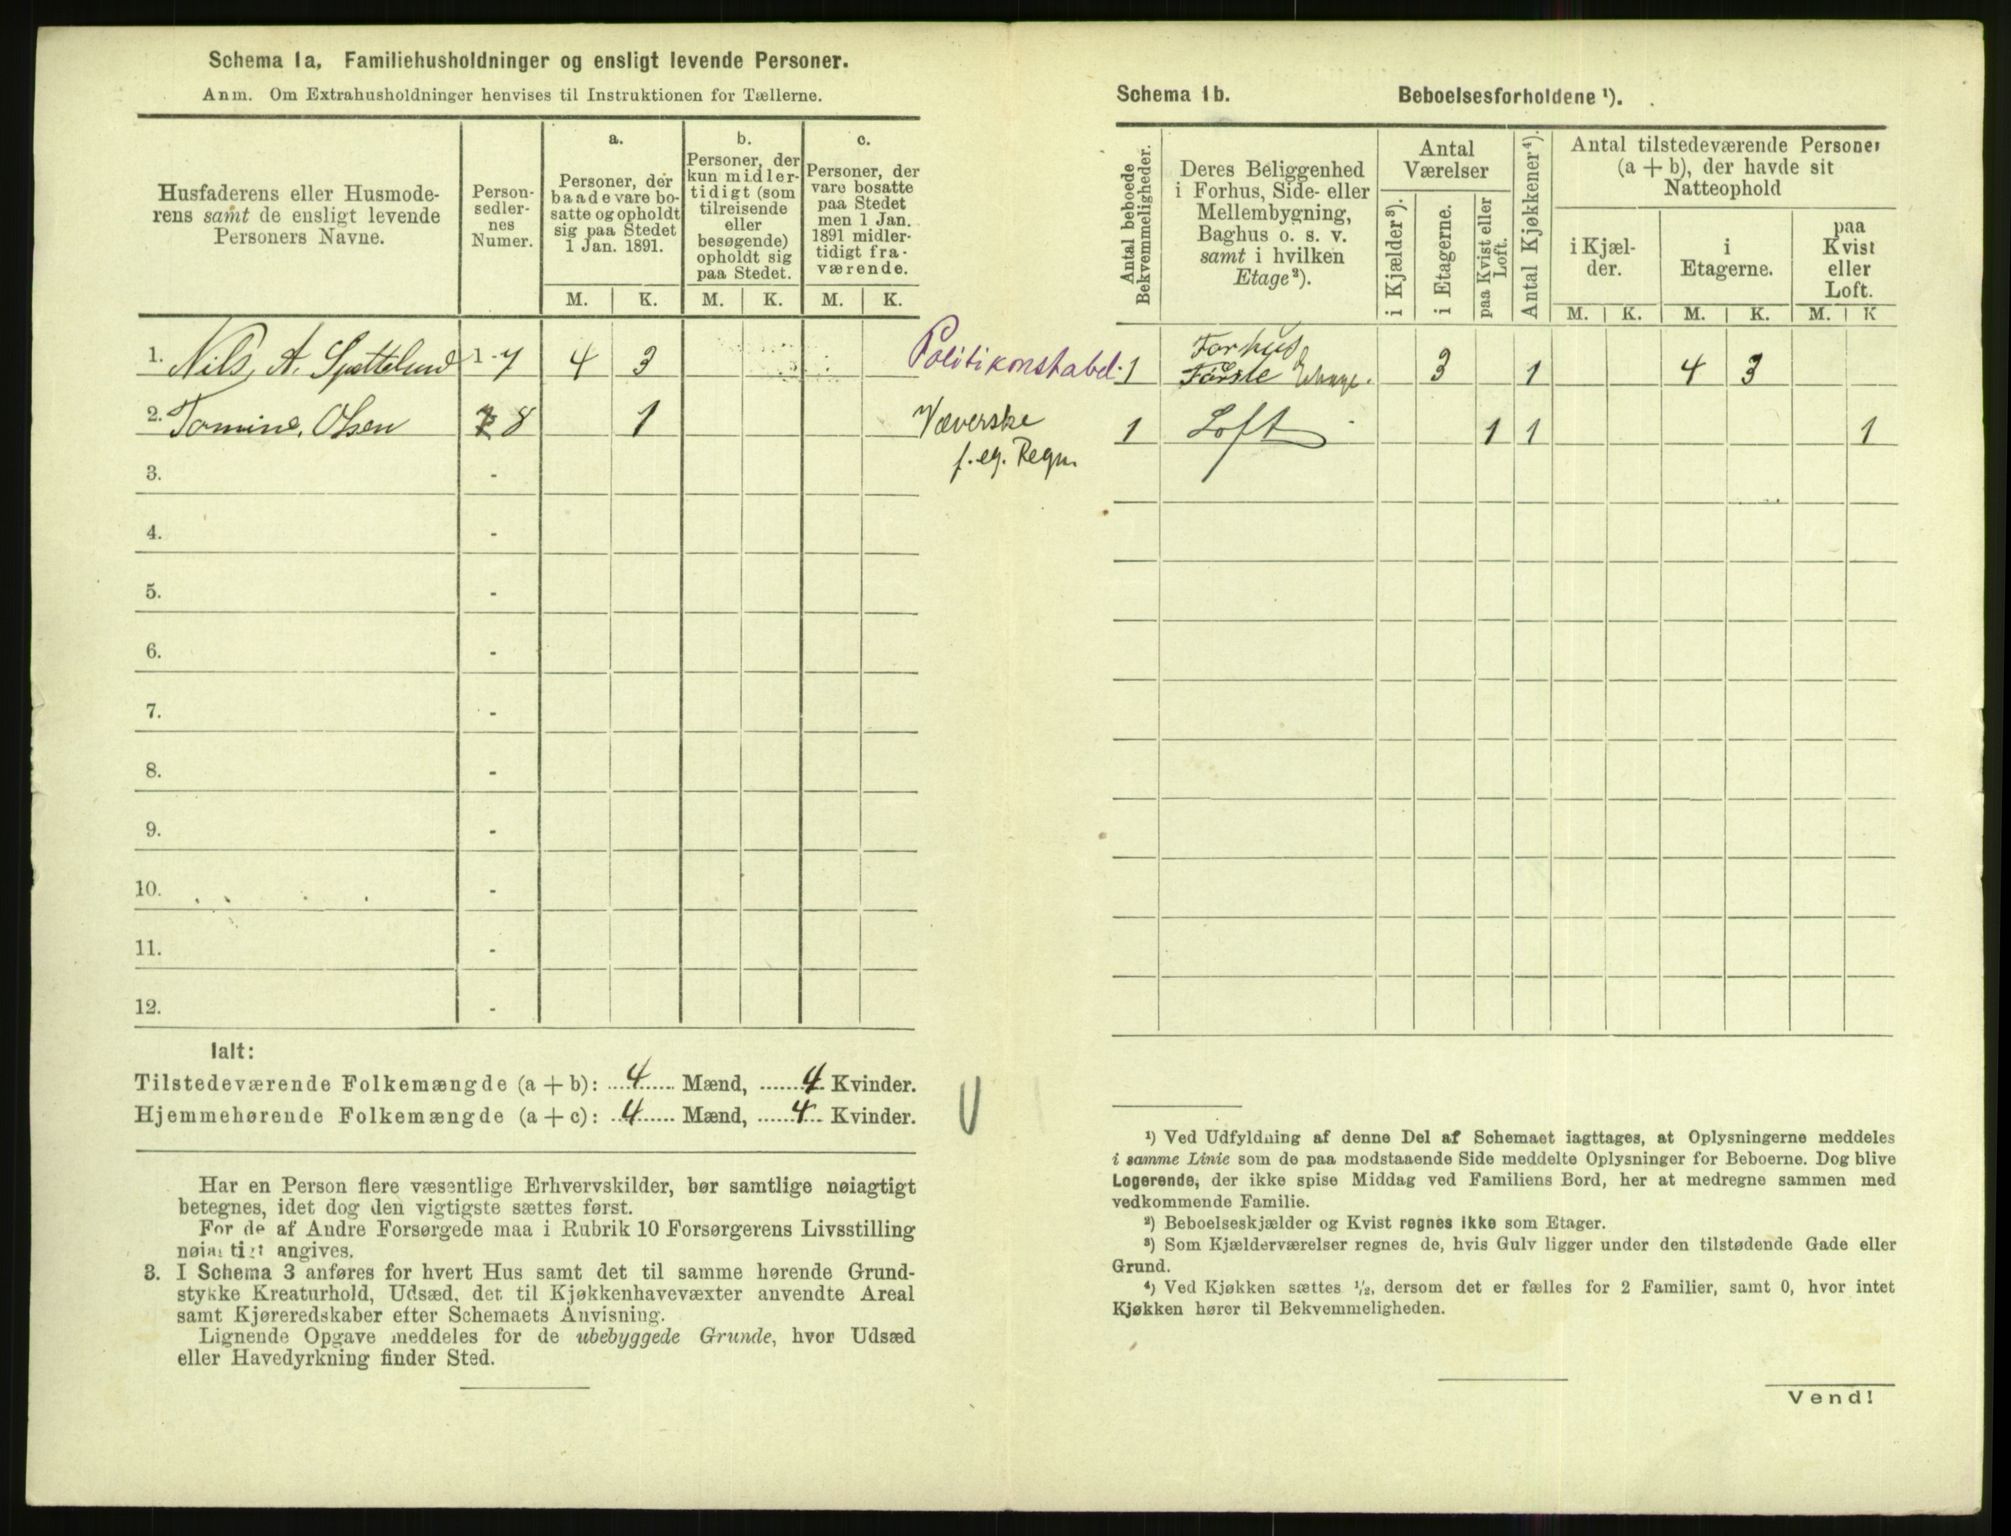 Schema 1a. Familiehusholdninger og ensligt levende Personer.
Anm. Om Extrahusholdninger henvises til Instruktionen for Tællerne.
Husfaderens eller Husmode-
rens samt de ensligt levende
Personers Navne.
Person-
sedler-
nes
Numer.
a.
Personer, der
baade vare bo-
satte og opholdt
sig paa Stedet
1 Jan. 1891.
M. K.
b.
Personer, der
kun midler-
tidigt (som
tilreisende
eller
besøgende)
opholdt sig
paa Stedet.
M. K.
c.
Personer, der
vare bosatte
paa Stedet
men 1 Jan.
1891 midler-
tidigt fra-
værende.
M. K.
1. Nils, A. 1-7 4 3 Politikonstabel.
2. Tomine, Olsen 8 1 Væverske
f. eg. Regn.
3. -
4. -
5. -
6. -
7. -
8. -
9. -
10. -
11. -
12. -
Ialt:
Tilstedeværende Folkemængde (a + b): 4 Mænd, 4 Kvinder.
Hjemmehørende Folkemængde (a + c): 4 Mænd, 4 Kvinder.
Har en Person flere væsentlige Erhvervskilder, bør samtlige nøiagtigt
betegnes, idet dog den vigtigste sættes først.
For de af Andre Forsørgede maa i Rubrik 10 Forsørgerens Livsstilling
nøiagtigt angives.
3. I Schema 3 anføres for hvert Hus samt det til samme hørende Grund-
stykke Kreaturhold, Udsæd, det til Kjøkkenhavevæxter anvendte Areal
samt Kjøreredskaber efter Schemaets Anvisning.
Lignende Opgave meddeles for de ubebyggede Grunde, hvor Udsæd
eller Havedyrkning finder Sted.
Schema 1b. Beboelsesforholdene ¹).
Antal beboede
Bekvemmeligheder.
Deres Beliggenhed
i Forhus, Side- eller
Mellembygning,
Baghus o. s. v.
samt i hvilken
Etage²).
Antal
Værelser
i Kjælder³).
i Etagerne.
paa Kvist eller
Loft.
Antal Kjøkkener⁴).
Antal tilstedeværende Personer
(a + b), der havde sit
Natteophold
i Kjæl-
der.
i
Etagerne.
paa
Kvist
eller
Loft.
M. K. M. K. M. K
Forhus
1 Første Etage. 3 1 4 3
1 Loft 1 1 1
¹) Ved Udfyldning af denne Del af Schemaet iagttages, at Oplysningerne meddeles
i samme Linie som de paa modstaaende Side meddelte Oplysninger for Beboerne. Dog blive
Logerende, der ikke spise Middag ved Familiens Bord, her at medregne sammen med
vedkommende Familie.
²) Beboelseskjælder og Kvist regnes ikke som Etager.
³) Som Kjælderværelser regnes de, hvis Gulv ligger under den tilstødende Gade eller
Grund.
⁴) Ved Kjøkken sættes ½, dersom det er fælles for 2 Familier, samt 0, hvor intet
Kjøkken hører til Bekvemmeligheden.
Vend!